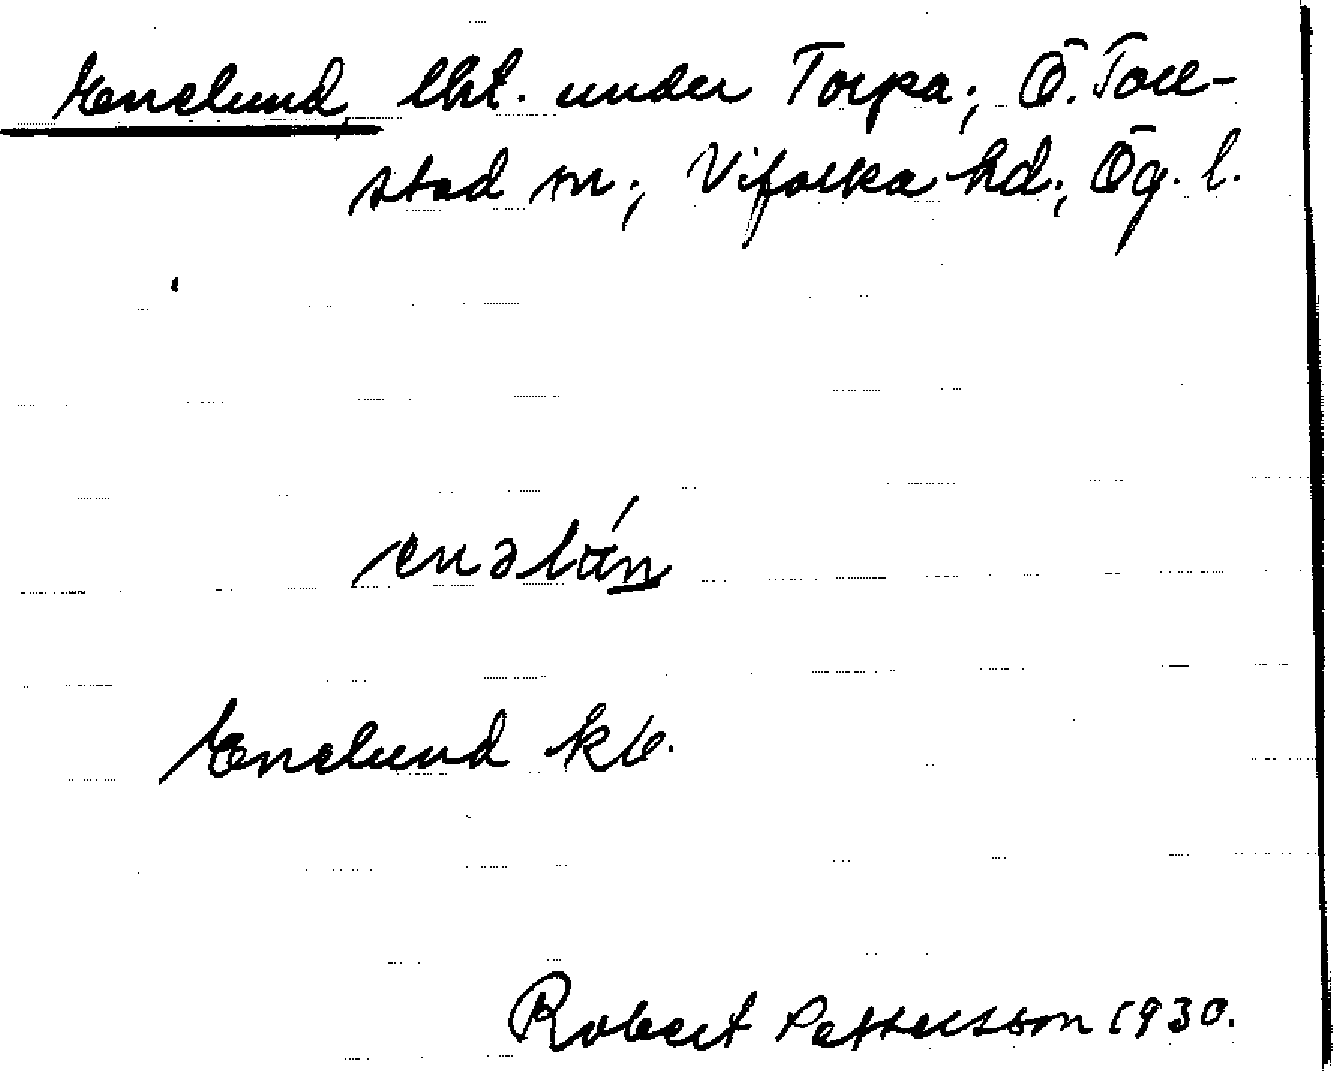 Enelund lht. under Torpa; Ö. Toll-
stad sn; Vifolka hd; Ög. l.
enəlún
Enelund kb.
Robert Pettersson 1930.